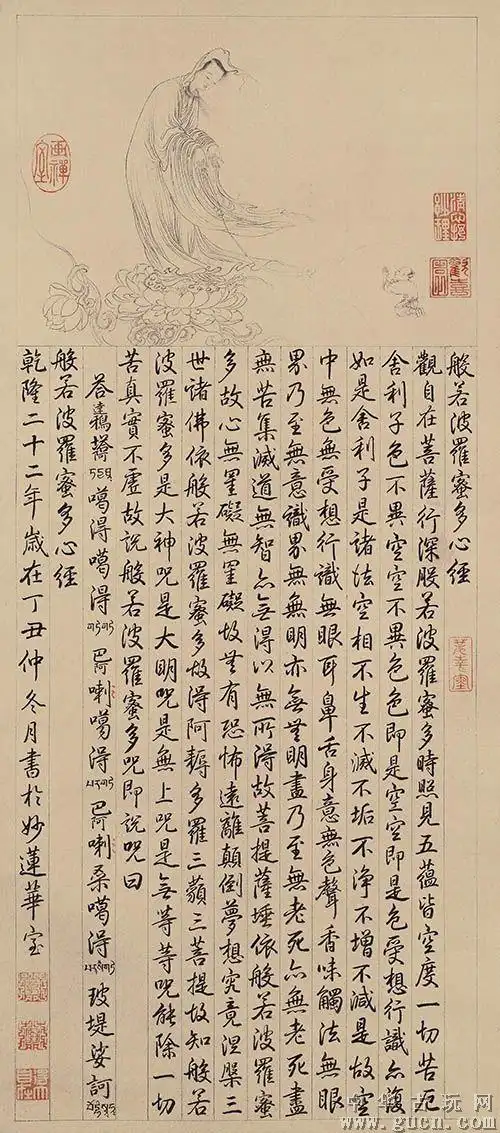 般若波羅蜜多心經
觀自在菩薩行深般若波羅蜜多時照見五蘊皆空度一切苦厄
舍利子色不異空空不異色色即是空空即是色受想行識亦復
如是舍利子是諸法空相不生不滅不垢不淨不增不減是故空
中無色無受想行識無眼耳鼻舌身意無色聲香味觸法無眼
界乃至無意識界無無明亦無無明盡乃至無老死亦無老死盡
無苦集滅道無智亦無得以無所得故菩提薩埵依般若波羅蜜
多故心無罣礙無罣礙故無有恐怖遠離顛倒夢想究竟涅槃三
世諸佛依般若波羅蜜多故得阿耨多羅三藐三菩提故知般若
波羅蜜多是大神咒是大明咒是無上咒是無等等咒能除一切
苦真實不虛故說般若波羅蜜多咒即說咒曰
噶得噶得巴阿喇噶得巴阿喇桑噶得玻堤娑訶
般若波羅蜜多心經
乾隆二十二年歲在丁丑仲冬月書於妙蓮華室
中华古玩网
www.gucn.com